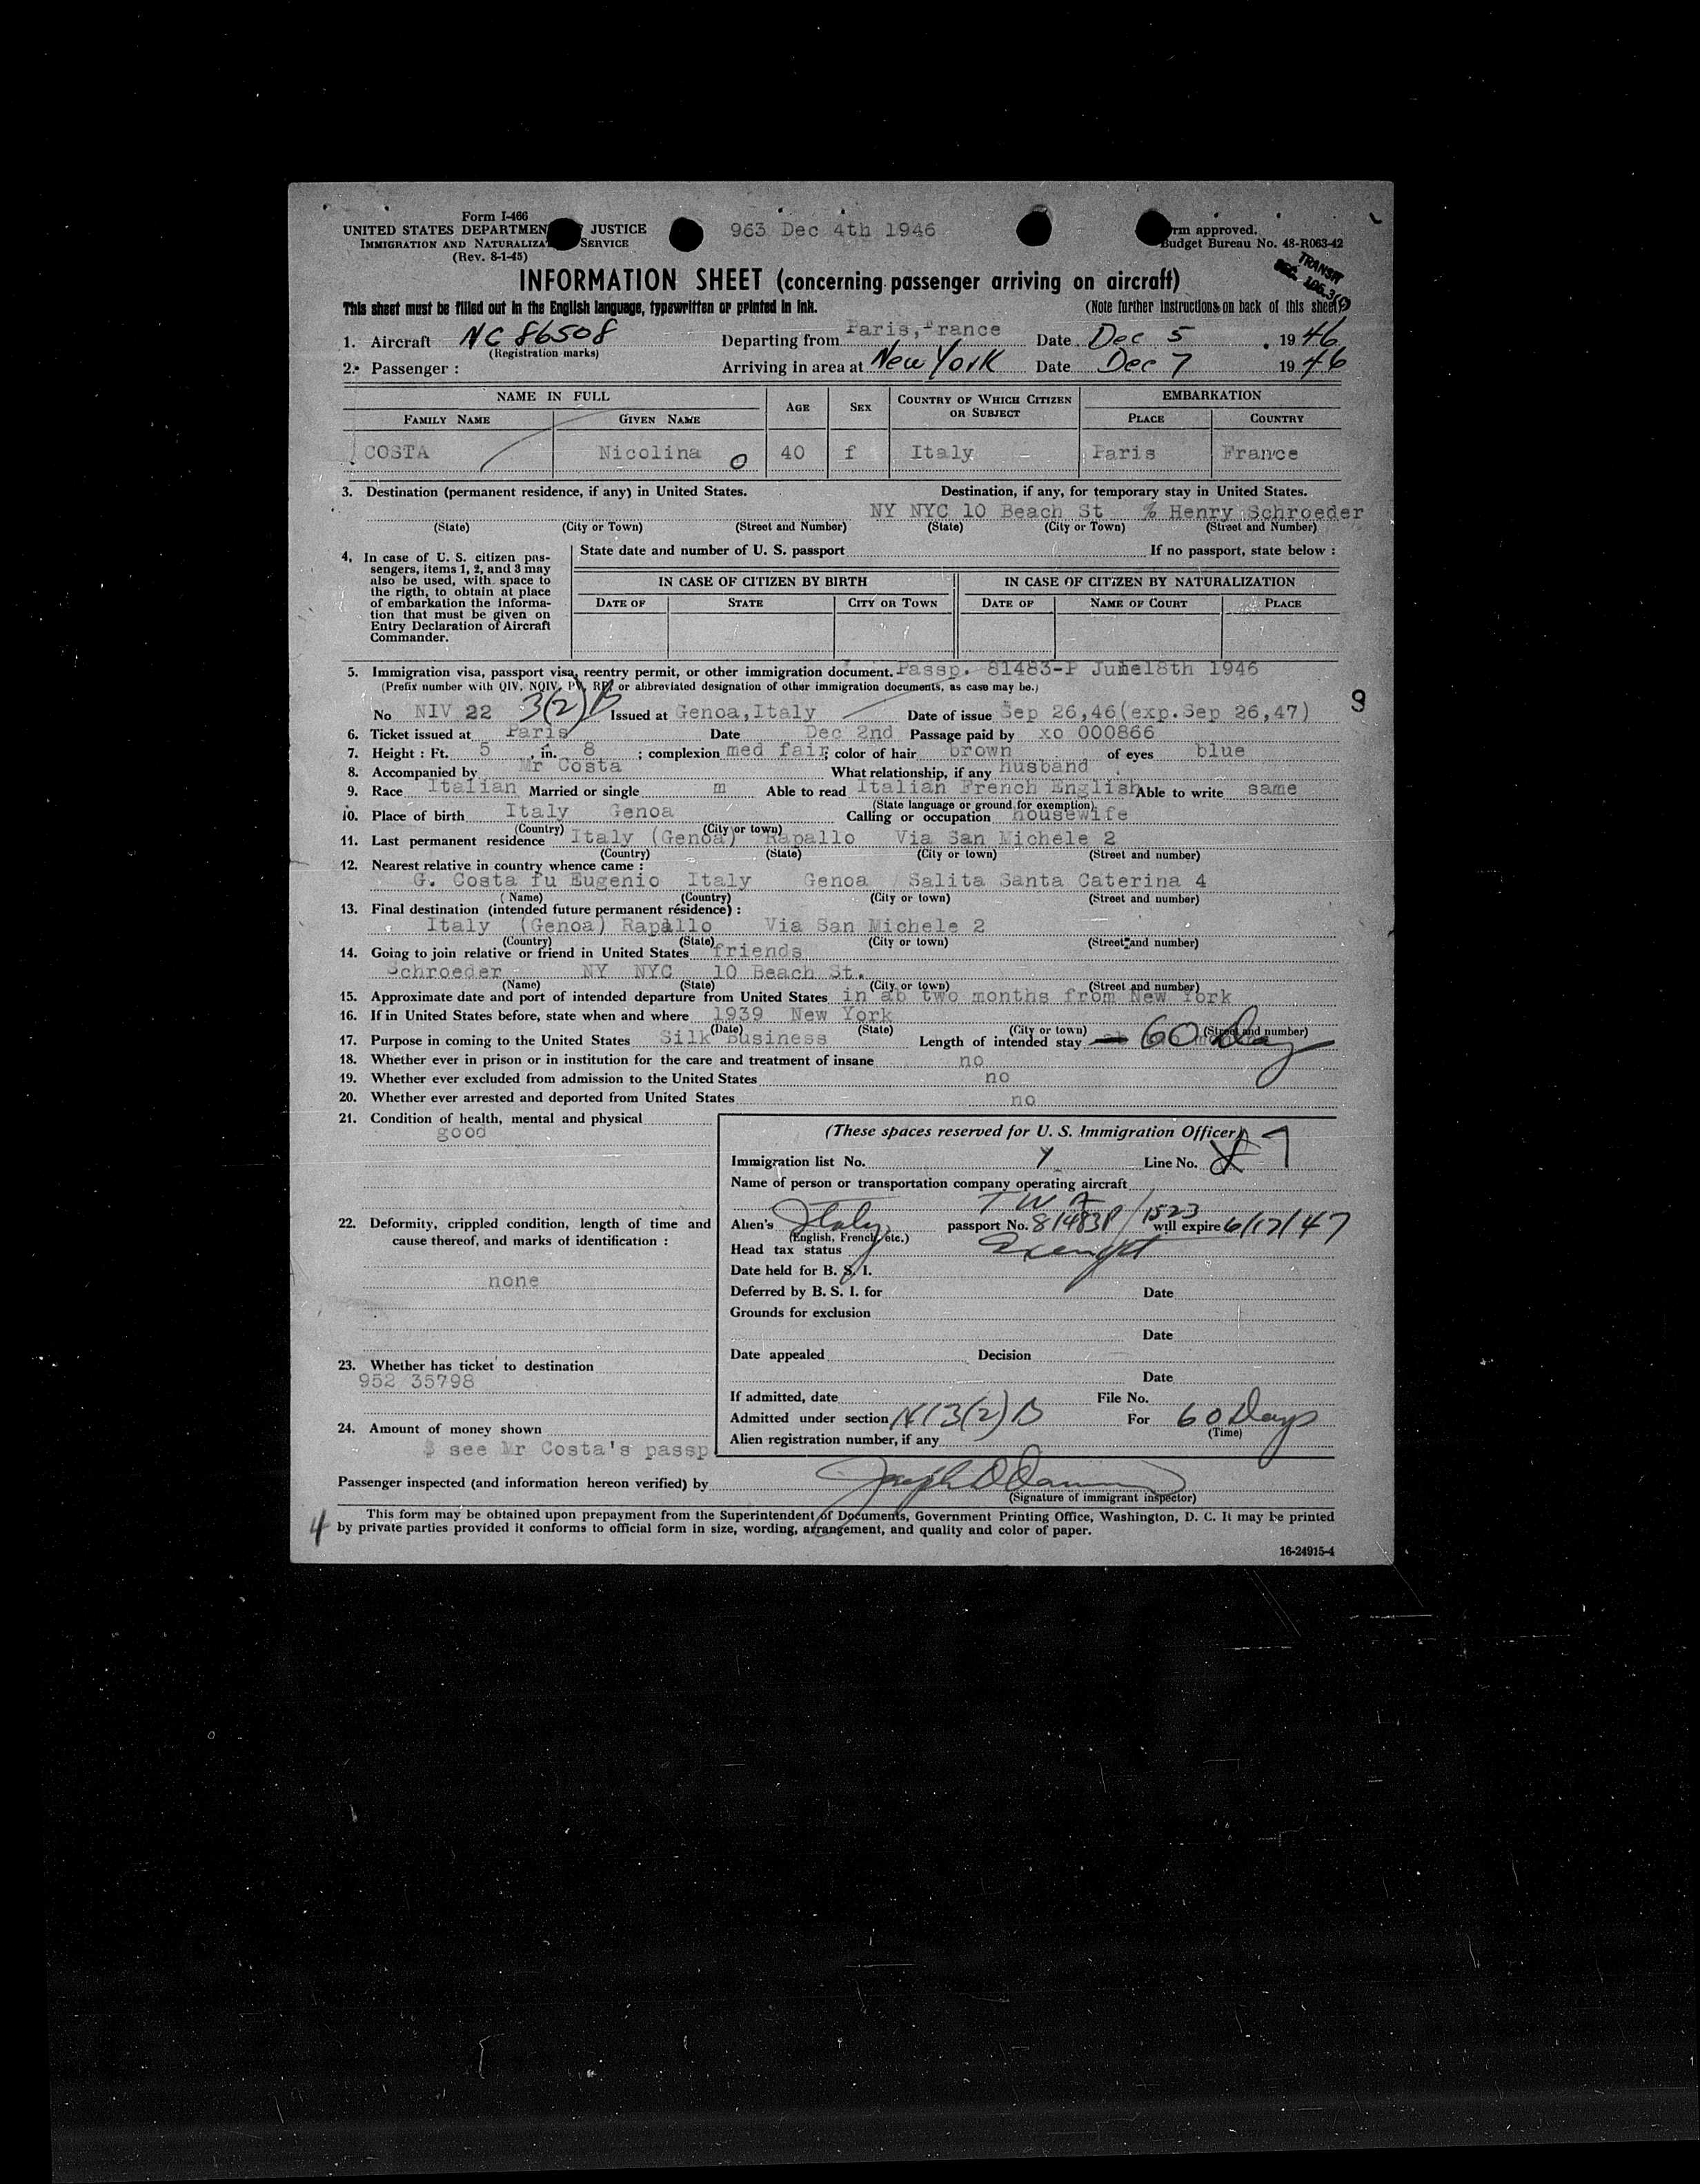 Form I-466
UNITED STATES DEPARTMEN JUSTICE
IMMIGRATION AND NATURALIZA SERVICE
(Rev. 8-1-45)
963 Dec 4th 1946
rm approved.
Budget Bureau No. 43-R063-42
TRANSIT
SEC. 106.3(6)
INFORMATION SHEET (concerning passenger arriving on aircraft)
This sheet must be filled out in the English language, typewritten or printed in ink. (Note further instructions on back of this sheet)
1. Aircraft NC 86508 Departing from Paris, France Date Dec 5, 1946
(Registration marks)
2. Passenger : Arriving in area at New York Date Dec 7 1946
NAME IN FULL AGE SEX COUNTRY OF WHICH CITIZEN OR SUBJECT EMBARKATION
FAMILY NAME GIVEN NAME PLACE COUNTRY
COSTA Nicolina O 40 f Italy Paris France
3. Destination (permanent residence, if any) in United States. Destination, if any, for temporary stay in United States.
NY NYC 10 Beach St % Henry Schroeder
(State) (City or Town) (Street and Number) (State) (City or Town) (Street and Number)
4. In case of U. S. citizen pas-
sengers, items 1, 2, and 3 may
also be used, with space to
the rigth, to obtain at place
of embarkation the informa-
tion that must be given on
Entry Declaration of Aircraft
Commander.
State date and number of U. S. passport If no passport, state below :
IN CASE OF CITIZEN BY BIRTH IN CASE OF CITIZEN BY NATURALIZATION
DATE OF STATE CITY OR TOWN DATE OF NAME OF COURT PLACE
5. Immigration visa, passport visa, reentry permit, or other immigration document. Passp. 81483-P June18th 1946
(Prefix number with QIV, NQIV, PV, RP, or abbreviated designation of other immigration documents, as case may be.)
No NIV 22 3(2)B Issued at Genoa,Italy Date of issue Sep 26,46(exp.Sep 26,47) 9
6. Ticket issued at Paris Date Dec 2nd Passage paid by xo 000866
7. Height : Ft. 5 , in. 8 ; complexion med fair; color of hair brown of eyes blue
8. Accompanied by Mr Costa What relationship, if any husband
9. Race Italian Married or single m Able to read Italian French English Able to write same
(State language or ground for exemption)
10. Place of birth Italy Genoa Calling or occupation housewife
(Country) (City or town)
11. Last permanent residence Italy (Genoa) Rapallo Via San Michele 2
(Country) (State) (City or town) (Street and number)
12. Nearest relative in country whence came :
G. Costa fu Eugenio Italy Genoa Salita Santa Caterina 4
(Name) (Country) (City or town) (Street and number)
13. Final destination (intended future permanent residence) :
Italy (Genoa) Rapallo Via San Michele 2
(Country) (State) (City or town) (Street and number)
14. Going to join relative or friend in United States friends
Schroeder NY NYC 10 Beach St.
(Name) (State) (City or town) (Street and number)
15. Approximate date and port of intended departure from United States in ab two months from New York
16. If in United States before, state when and where 1939 New York
(Date) (State) (City or town) (Street and number)
17. Purpose in coming to the United States Silk Business Length of intended stay 60 Day
18. Whether ever in prison or in institution for the care and treatment of insane no
19. Whether ever excluded from admission to the United States no
20. Whether ever arrested and deported from United States no
21. Condition of health, mental and physical
good
22. Deformity, crippled condition, length of time and
cause thereof, and marks of identification :
none
23. Whether has ticket to destination
952 35798
24. Amount of money shown
$ see Mr Costa's passp
(These spaces reserved for U. S. Immigration Officer)
Immigration list No. Y Line No. 7
Name of person or transportation company operating aircraft
TWA
Alien's Italy passport No. 81483P/1523 will expire 6/17/47
(English, French, etc.)
Head tax status Exempt
Date held for B. S. I.
Deferred by B. S. I. for Date
Grounds for exclusion
Date
Date appealed Decision
Date
If admitted, date File No.
Admitted under section 3(2)B For 60 Days
(Time)
Alien registration number, if any
Passenger inspected (and information hereon verified) by Joseph
(Signature of immigrant inspector)
This form may be obtained upon prepayment from the Superintendent of Documents, Government Printing Office, Washington, D. C. It may be printed
4 by private parties provided it conforms to official form in size, wording, arrangement, and quality and color of paper.
16-24915-4